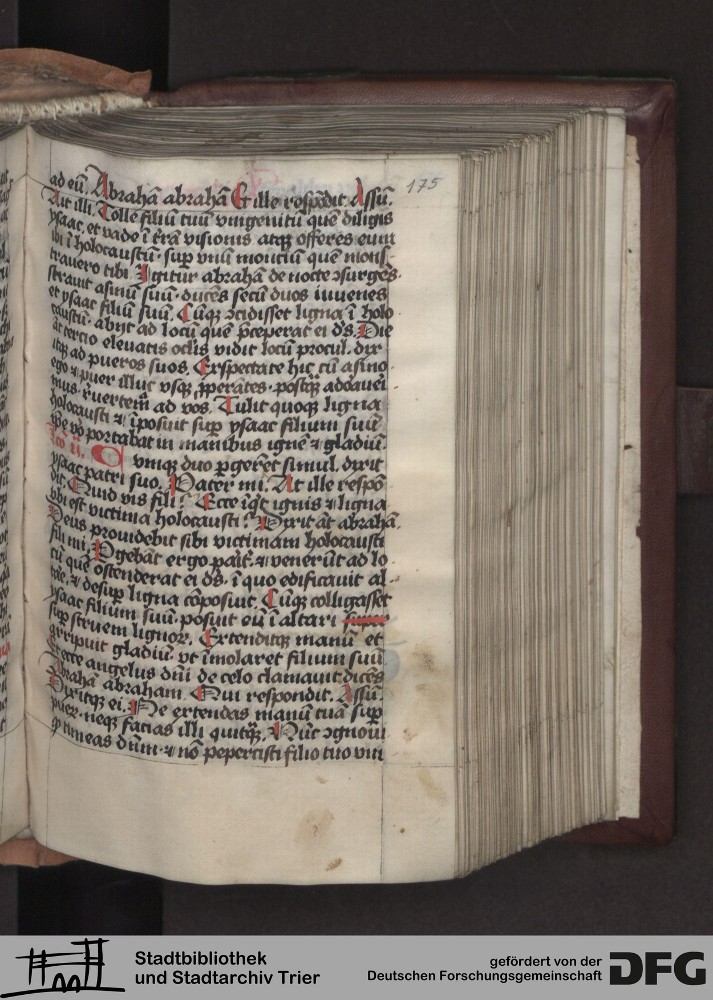 175
ad eū. Abrahā abrahā Et ille respōdit. Assū.
Ait illi. Tolle filiū tuū vnigenitū quē diligis
ysaac, et vade ī t̄rā visionis atqꝫ offeres eum
ibi ī holocaustū sup̄ vnū montiū quē mōst-
travero tibi Igitur abrahā de nocte ꝯsurgēs
stravit asinū suū. ducēs secū duos iuvenes
et ysaac filiū suū. Cūqꝫ ꝯcidisset ligna ī holo
caustū. abijt ad locū quē p̄ceperat ei ds̄. Die
āt tercio elevatis oclis vidit locū procul. dix̄
itqꝫ ad pueros suos. Expectate hic cū asino.
ego ⁊ puer illuc vsqꝫ ꝓperātes. postqꝫ adoravei
mus. revertem̄ ad vos. Tulit quoqꝫ ligna
holocausti ⁊ īposuit sup̄ ysaac filium suū
ip̄e v̄o portabat in manibus ignē ⁊ gladiū.
lc̄o ii. Cvmqꝫ duo ꝑgerēt simul. dixit
ysaac patri suo. Pater mi. At ille respō
dit. Quid vis fili? Ecce īqt ignis ⁊ ligna
vbi est victima holocausti? Dixit āt abrahā.
Deus providebit sibi victimam holocausti
fili mi. Pgebāt ergo pait̄. ⁊ venerūt ad lo
cū quē ostenderat ei ds̄. ī quo edificavit al-
tāe. ⁊ desup̄ ligna cōposuit. Cūqꝫ colligasset
ysaac filium suū. posuit eū ī altari super
sup̄ struem lignoꝝ. Extenditqꝫ manū et
arripuit gladiū vt īmolaret filium suū
Et ecce angelus dn̄i de celo clamavit dicēs
Abrahā abraham. Qui respondit. Assū.
Dixitqꝫ ei. Ne extendas manū tuā sup̄
puer. neqꝫ facias illi quitqꝫ. Nūc ꝯgnovi
ꝙ timeas dnm̄. ⁊ nō pepercisti filio tuo vni
Stadtbibliothek
und Stadtarchiv Trier
gefördert von der
Deutschen Forschungsgemeinschaft
DFG